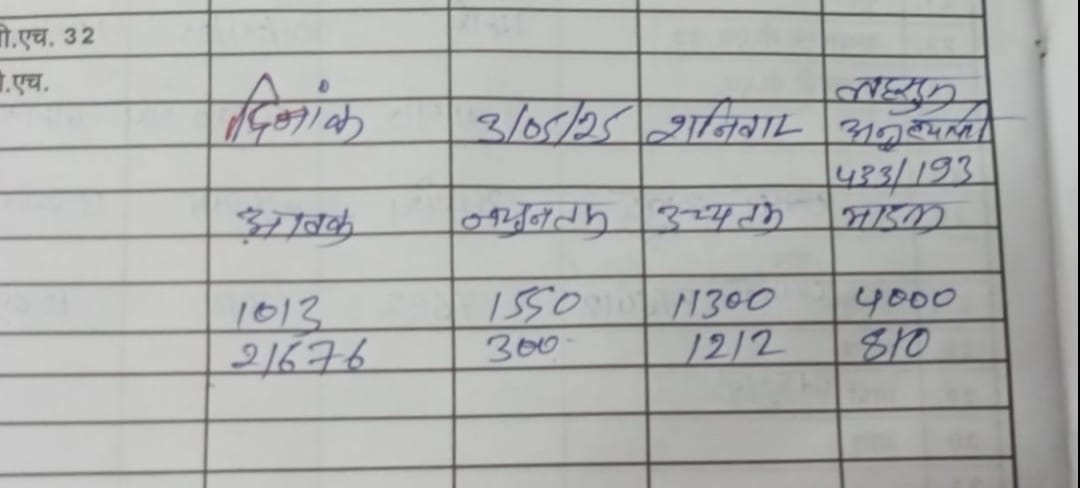 पी.एच. 32
पी.एच.
लहसुन
दिनांक 3/05/25 शनिवार
433/193
आवक न्युनतम उच्चतम माडल
1013 1550 11300 4000
21676 300 1212 810